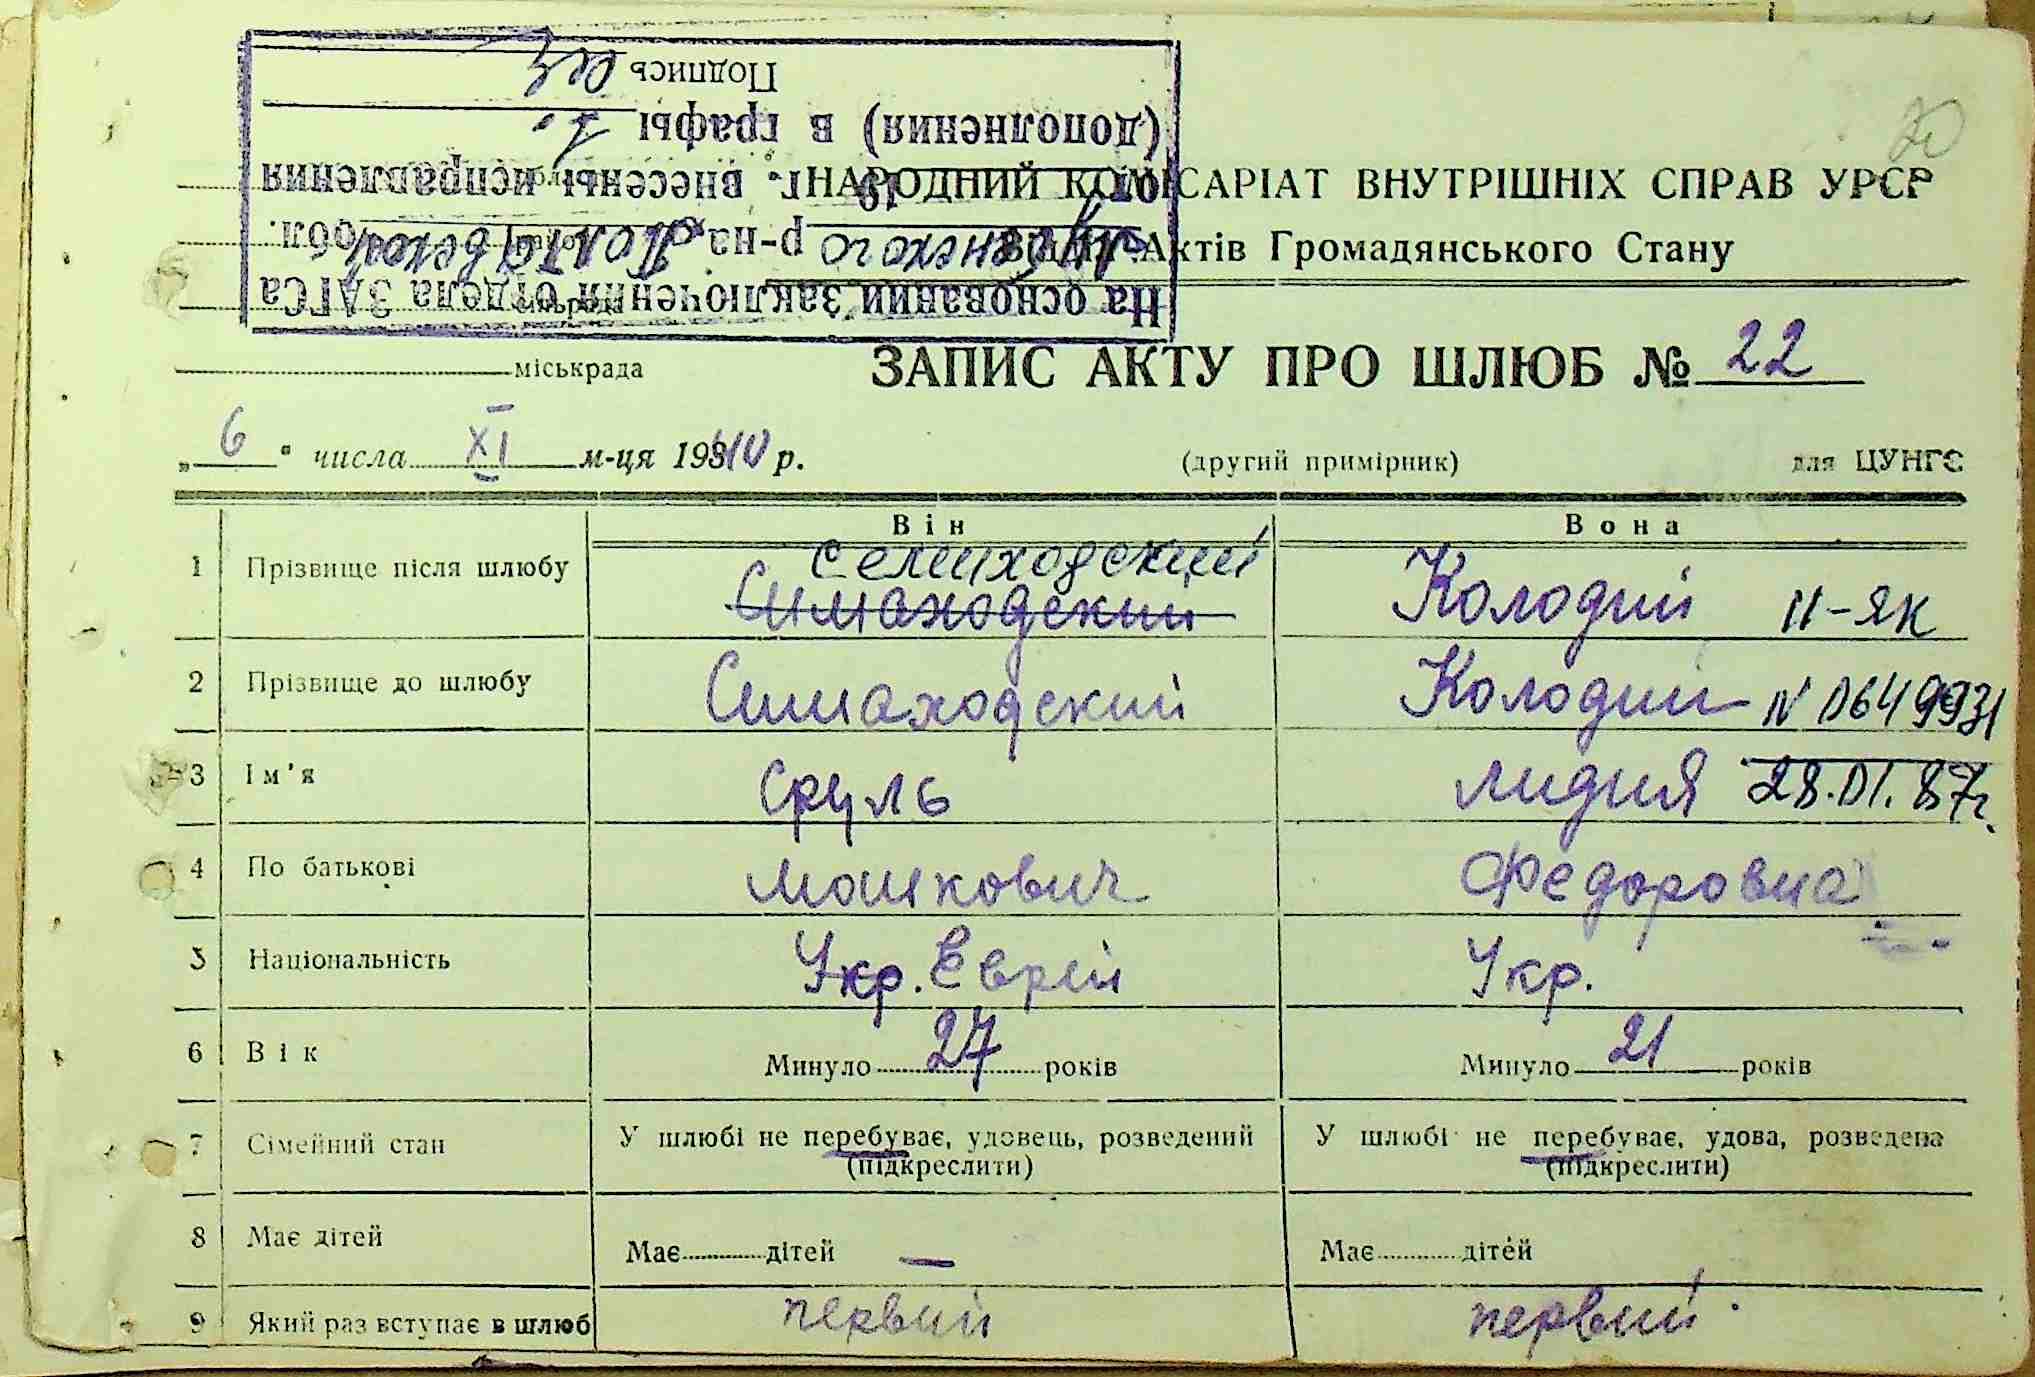 На основании заключения отдела ЗАГСа
р-на Полтавской обл.
от 19 г. внесены исправления
(дополнения) в графы 1.
Подпись
20
НАРОДНИЙ КОМІСАРІАТ ВНУТРІШНІХ СПРАВ УРСР
Відділ Актів Громадянського Стану
міськрада
ЗАПИС АКТУ ПРО ШЛЮБ № 22
„ 6 " числа XI м-ця 1940 р.
(другий примірник) для ЦУНГС
Він Вона
1 Прізвище після шлюбу Селиходский Симаходский Колодий II-ЯК
2 Прізвище до шлюбу Симаходский Колодий N 0649931
3 Ім'я Сруль Лидия 28.01.87г.
4 По батькові Мошкович Федоровна
5 Національність Укр. Еврей Укр.
6 Вік Минуло 27 років Минуло 21 років
7 Сімейний стан У шлюбі не перебуває, удовець, розведений У шлюбі не перебуває, удова, розведена
(підкреслити) (підкреслити)
8 Має дітей Має дітей — Має дітей
9 Який раз вступає в шлюб первий первий